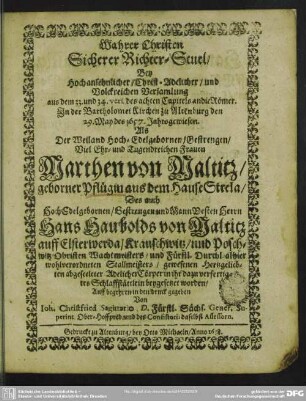 Wahrer Christen
Sicherer Richter-Stuel/
Bey
Hochansehnlicher/Christ-Adelicher/und
Volckreichen Versamlung
aus dem 33. und 34. vers. des achten Capitels an die Römer.
In der Bartholomei Kirchen zu Altenburg den
29. May des 1657. Jahres gewiesen.
Als
Der Weiland Hoch-Edelgebornen/Gestrengen/
Viel Ehr- und Tugendreichen Frauen
Marthen von Maltitz/
geborner Pflügin aus dem Hause Strela/
Des auch
HochEdelgebornen/Gestrengen und Mann Vesten Herrn
Hans Haubolds von Maltitz
auff Elsterwerda/Krauschwitz/und Posch-
witz Obristen Wachtmeisters/und Fürstl. Durchl. alhier
wohlverordneten Stallmeisters/gewesenen Hertzgelieb-
ten abgeseelter Adelicher Cörper in ihr dazu verfertig-
tes Schlaffkästlein beygesetzet worden/
Auff begehren in den druck gegeben
Von
Joh. Christfried Sagittario D. Fürstl. Sächs. Gener. Su-
perint. Ober-Hoffpred. und des Consistorii daselbst Assessorn.
Gedruckt zu Altenburg/bey Otto Michaeln/Anno 1658.